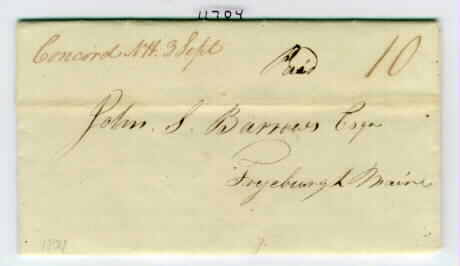 11704
Concord N.H. 3 Sept
Paid 10
John. S. Barrows Esqr
Fryeburgh Maine